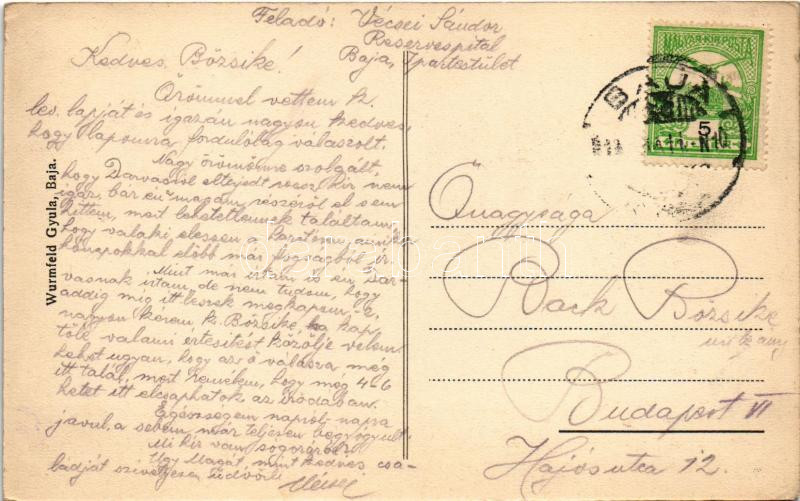 Feladó: Vécsei Sándor
Reservespital
Baja, Ipartestület
Kedves Bözsike!
Örömmel vettem k.
lev. lapját és igazán nagyon kedves,
hogy lapomra fordulólag válaszolt.
Nagy örömömre szolgált,
hogy Darvasról elterjedt rossz hír nem
igaz, bár én magam részéről el sem
hittem, mert lehetetlennek találtam,
hogy valaki elessen a harctéren, amikor
hónapokkal előbb már fogságból ír.
Mint már írtam is én Dar-
vasnak írtam, de nem tudom, hogy
addig míg itt leszek megkapom-e,
nagyon kérem k. Bözsike, ha kap
tőle valami értesítést közölje velem
lehet ugyan, hogy az ő válasza még
itt talál, mert remélem, hogy még 4-6
hetet itt elcsaphatok az irodában.
Egészségem napról-napra
javul, a sebem már teljesen begyógyult.
Mi hír van sógoráról?
Úgy Magát, mint kedves csa-
ládját szívélyesen üdvözli
Wurmfeld Gyula, Baja.
MAGYAR KIR. POSTA
5
BAJA
Őnagysága
Back Bözsike
Budapest VI
Hajós utca 12.